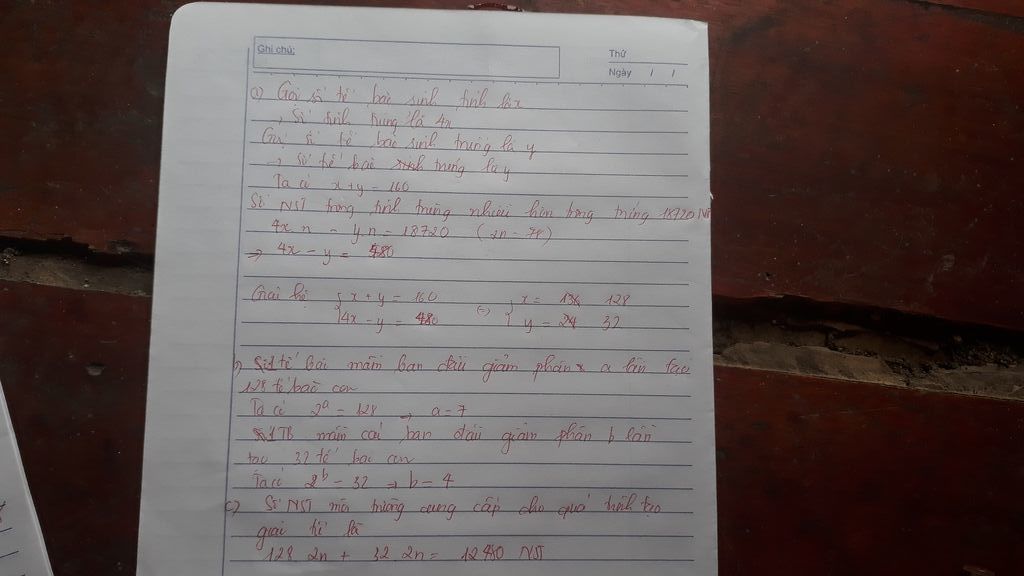 Ghi chú:
Thứ
Ngày / /
a) Gọi số tế bào sinh tinh là x
→ Số tinh trùng là 4x
Gọi số tế bào sinh trứng là y
→ Số tế bào trứng là y
Ta có x + y = 160
Số NST trong tinh trùng nhiều hơn trong trứng 18720 NST
4x n - y n = 18720 (2n = 78)
⇒ 4x - y = 480
Giải hệ { x + y = 160 (=) { x = 136 128
{ 4x - y = 480 { y = 24 32
b) Số 1 tế bào mầm ban đầu giảm phân a lần tạo
128 tế bào con
Ta có 2^a = 128 → a = 7
1 TB mầm cái ban đầu giảm phân b lần
tạo 32 tế bào con
Ta có 2^b = 32 → b = 4
c) Số NST môi trường cung cấp cho quá trình tạo
giao tử là
128. 2n + 32. 2n = 12480 NST